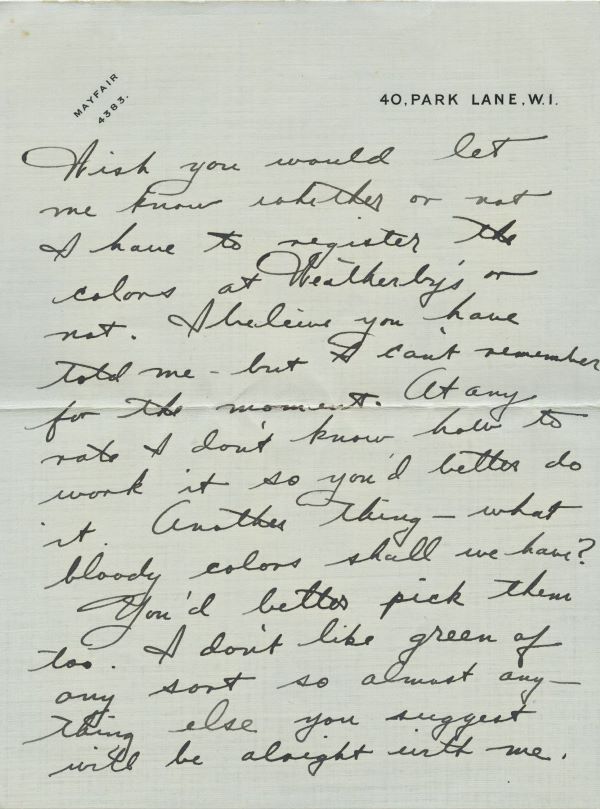 MAYFAIR
4383.
40, PARK LANE, W.1.
Wish you would let
me know whether or not
I have to register the
colors at Weatherby's or
not. I beleive you have
told me - but I can't remember
for the moment. At any
rate I don't know how to
work it so you'd better do
it. Another thing — what
bloody colors shall we have?
You'd better pick them
too. I don't like green of
any sort so almost any-
thing else you suggest
will be alright with me.